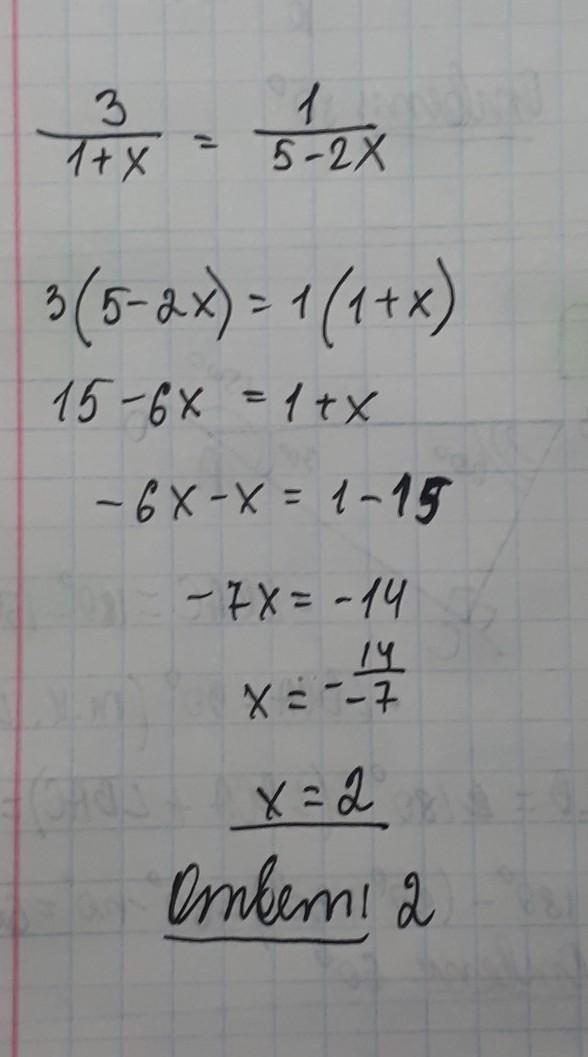 3/(1+x) = 1/(5-2x)
3(5-2x)=1(1+x)
15-6x = 1+x
-6x-x = 1-15
-7x = -14
x = -14/-7
x = 2
Ответ: 2